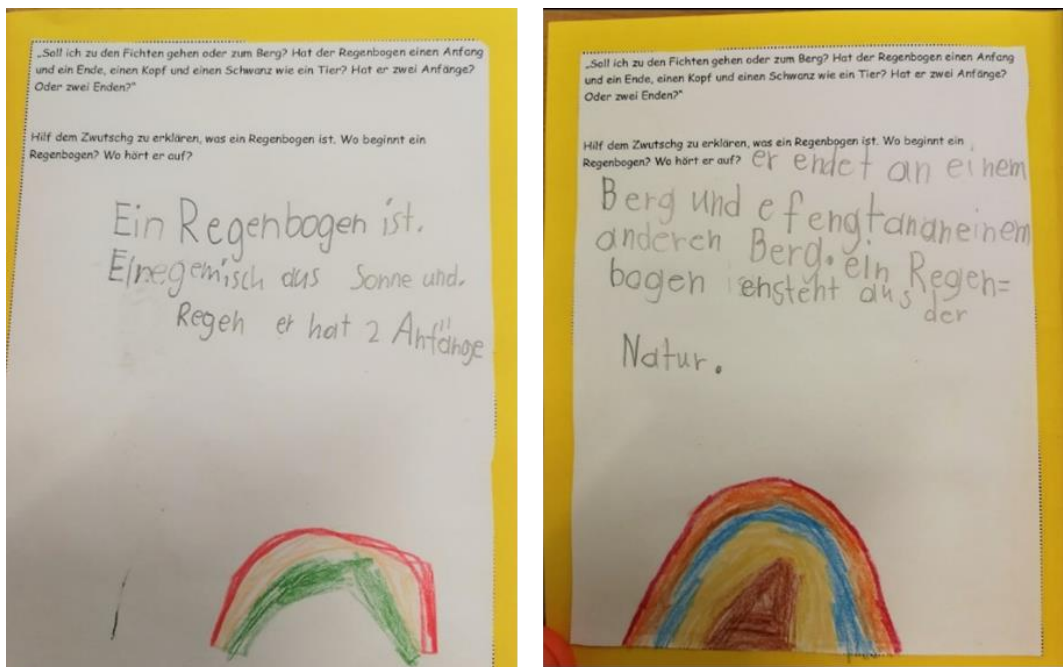 „Soll ich zu den Fichten gehen oder zum Berg? Hat der Regenbogen einen Anfang
und ein Ende, einen Kopf und einen Schwanz wie ein Tier? Hat er zwei Anfänge?
Oder zwei Enden?“
Hilf dem Zwutschg zu erklären, was ein Regenbogen ist. Wo beginnt ein
Regenbogen? Wo hört er auf?
Ein Regenbogen ist.
Einegemisch aus Sonne und.
Regen er hat 2 Anfänge
„Soll ich zu den Fichten gehen oder zum Berg? Hat der Regenbogen einen Anfang
und ein Ende, einen Kopf und einen Schwanz wie ein Tier? Hat er zwei Anfänge?
Oder zwei Enden?“
Hilf dem Zwutschg zu erklären, was ein Regenbogen ist. Wo beginnt ein
Regenbogen? Wo hört er auf? er endet an einem
Berg und efengtananeinem
anderen Berg. ein Regen=
bogen ensteht aus
der
Natur.